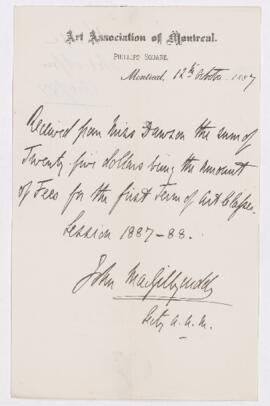 Art Association of Montreal.
PHILLIPS SQUARE.
Montreal, 12th October 1887
Received from Miss Dawson the sum of
Twenty five dollars being the amount
of Fees for the first Term of Art Classes
Session 1887-88.
John
Secty A.A.M.